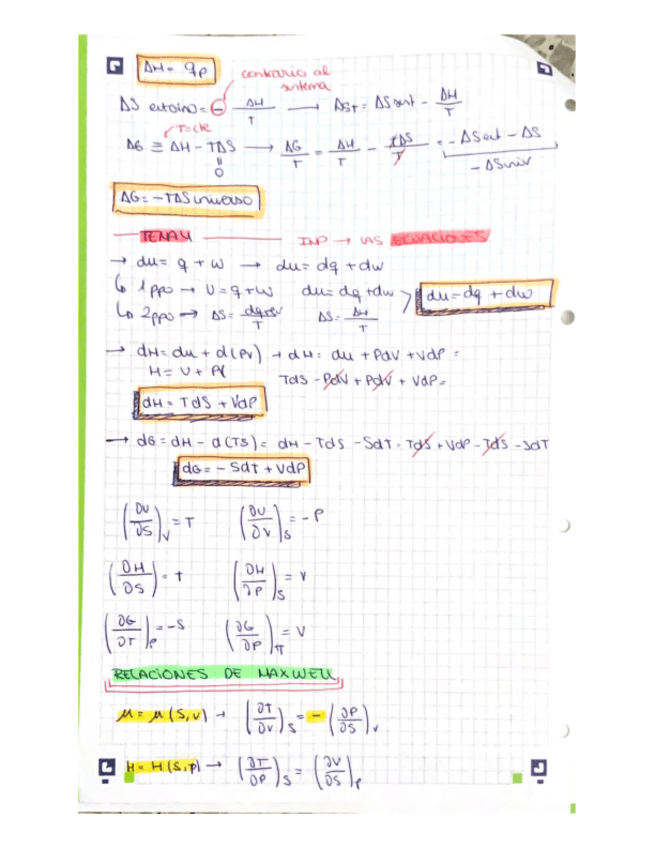 ΔH = qp
contrario al
sistema
ΔS entorno = - ΔH/T → ΔST = ΔSent - ΔH/T
T=cte
ΔG ≡ ΔH - TΔS → ΔG/T = ΔH/T - TΔS/T = -ΔSent - ΔS
0
-ΔSuniv
ΔG = -TΔS universo
TEMA 4 INP → LAS ECUACIONES
→ du = q + w → du = dq + dw
1ppo → U = q + w du = dq + dw
du = dq + dw
2ppo → ΔS = dqrev/T ΔS = ΔH/T
→ dH = du + d(PV) → dH = du + PdV + VdP =
H = U + PV TdS - PdV + PdV + VdP =
dH = TdS + VdP
→ dG = dH - d(TS) = dH - TdS - SdT = TdS + VdP - TdS - SdT
dG = -SdT + VdP
(∂U/∂S)V = T (∂U/∂V)S = -P
(∂H/∂S) = T (∂H/∂P)S = V
(∂G/∂T)P = -S (∂G/∂P)T = V
RELACIONES DE MAXWELL
μ = μ(S,V) → (∂T/∂V)S = - (∂P/∂S)V
H = H(S,P) → (∂T/∂P)S = (∂V/∂S)P